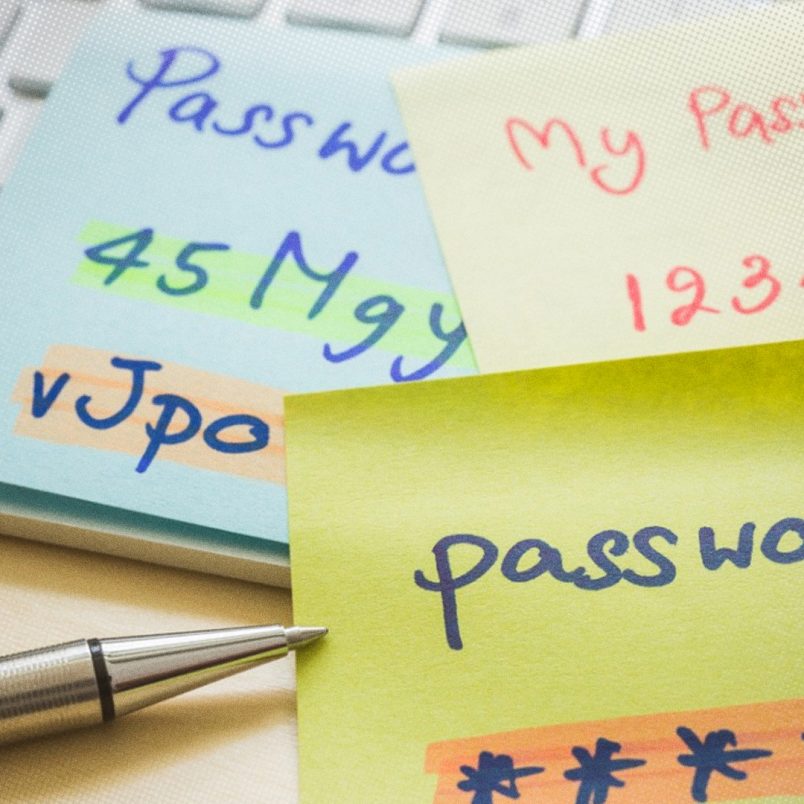 Passwo
45 Mgy
vJpo
My Pass
123
passwo
***